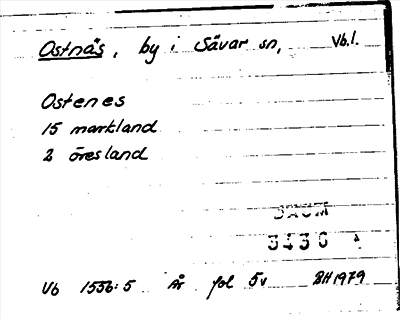 Ostnäs, by i Sävar sn, Vb.l.
Ostenes
15 markland
2 öresland
DAUM
3436
Vb 1556:5 År fol 5v BH 1979